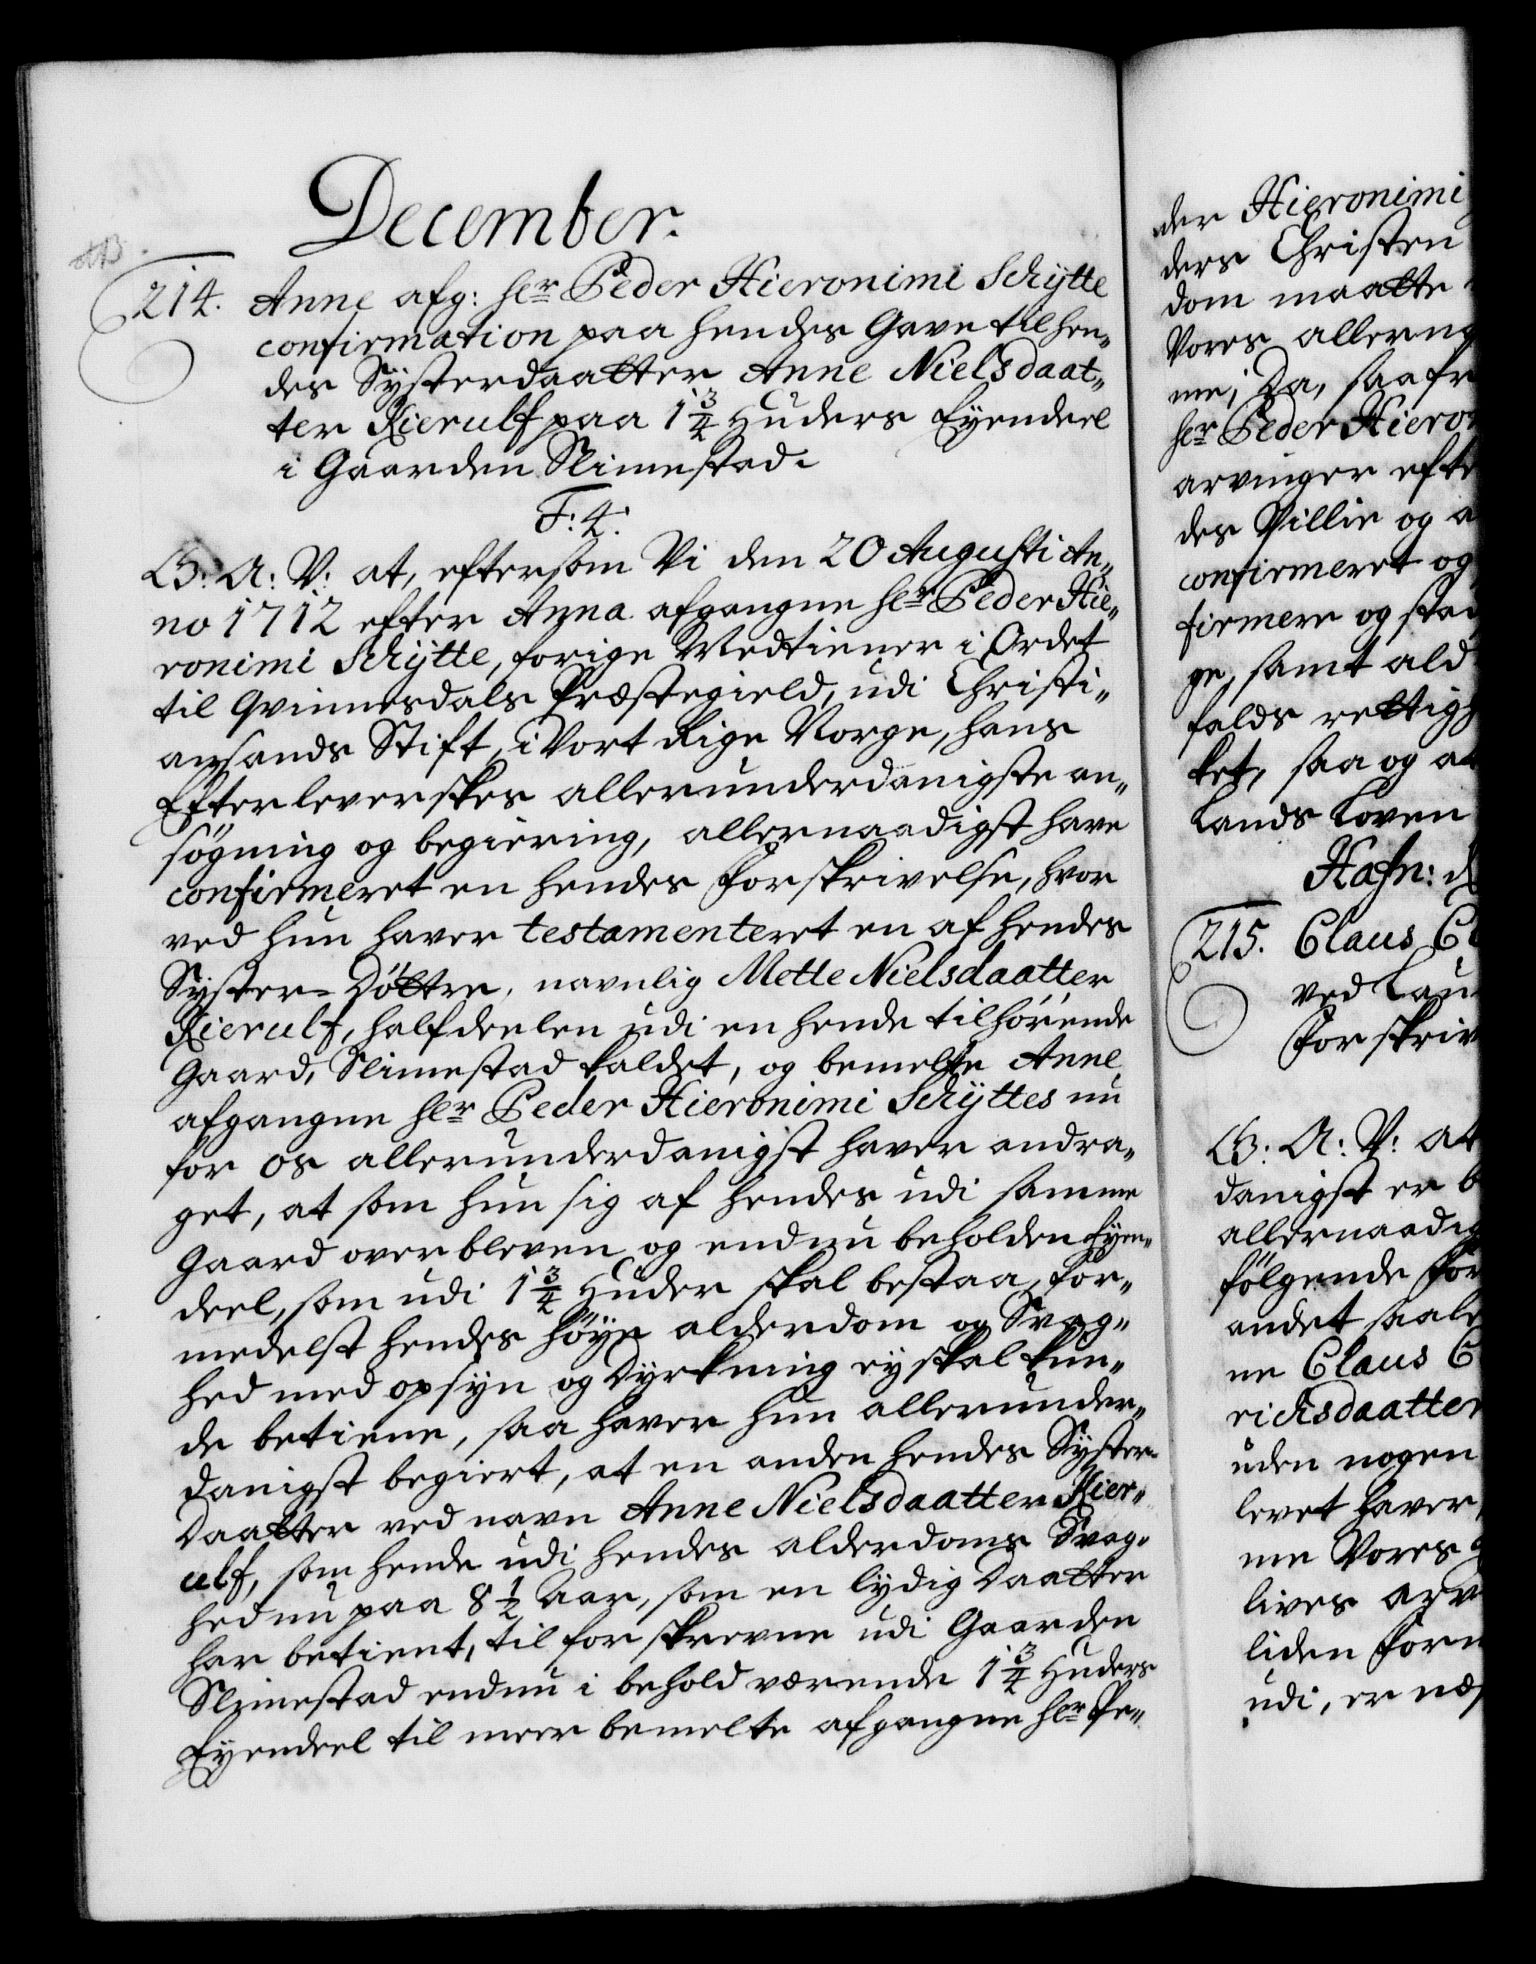 December.
214. Anne afg: hr Peder Hieronimi Schytte
confirmation paa hendes Gave til hen„
des Systerdaatter Anne Nielsdaat„
ter Kierulf paa 1 3/4 Huders Eyendeel
i Gaarden Slimestad.
F: 4.
G: A: V: at, eftersom Vi den 20 Augusti An„
no 1712 efter Anna afgangne hr Peder Hie„
ronimi Schytte, forige Medtiener i Ordet
til Qvinnesdals Præstegield, udi Christi„
ansands Stift, i Vort Rige Norge, hans
Efterleverskes allerunderdanigste an„
søgning og begiering, allernaadigst have
confirmeret en hendes forskrivelse, hvor
ved hun haver testamenteret en af hendes
Syster-Døttre, navnlig Mette Nielsdaatter
Kierulf, halfdeelen udi en hende tilhørende
Gaard, Slimestad kaldet, og bemelte Anne
afgangne hr Peder Hieronimi Schyttes nu
for os allerunderdanigst haver andra„
get, at som hun sig af hendes udi samme
Gaard overbleven og endnu beholden Eyen„
deel, som udi 1 3/4 Huder skal bestaa, for„
medelst hendes høye alderdom og Svag„
hed med opsyn og Dyrkning ey skal kun„
de betiene, saa haver hun allerunder„
danigst begiert, at en anden hendes Syster
Daatter ved navn Anne Nielsdaatter Kier„
ulf, som hende udi hendes alderdoms Svag„
hed nu paa 8 1/2 Aar, som en lydig Daatter
har betient, til forskrevne udi Gaarden
Slimestad endnu i behold værende 1 3/4 Huders
Eyendeel til meer bemelte afgangne hr Pe„
der Hieronimi
ders Christen
dom maatte
Vores allerng
me; Da, saafr
hr Peder Hieron
arvinger efte
des Villie og a
confirmeret og
firmere og stad
ge, samt ald
falds rettigh
ket, saa og at
Lands Loven
Hafn: d
215. Claus C
ved Lau
forskriv
G: A: V: at
danigst er b
allernaadig
følgende for
andet saale
ne Claus C
richsdaatter
uden nogen
levet haver,
me Vores
lives arv
liden form
udi, er næs